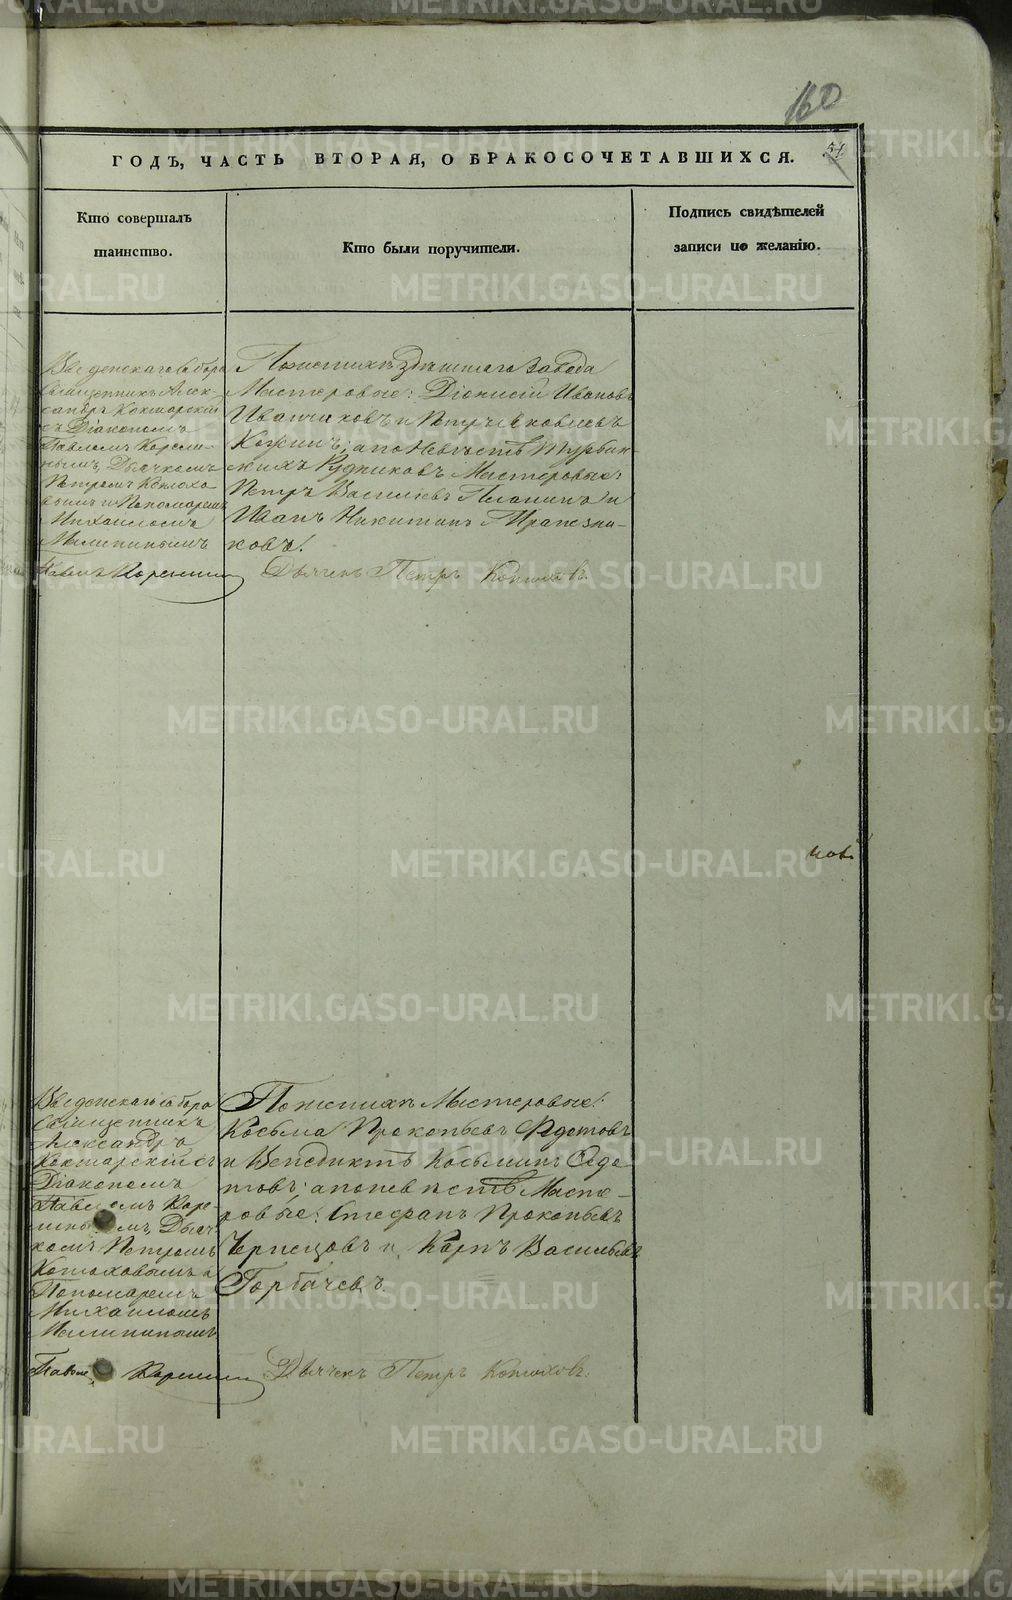 160
ГОДЪ, ЧАСТЬ ВТОРАЯ, О БРАКОСОЧЕТАВШИХСЯ.
51.
Кто совершалъ
таинство.
Кто были поручители.
Подпись свидѣтелей
записи по желанію.
Введенскаго Собора
Священникъ Алек-
сандръ Кокшарскій
съ Діакономъ
Павломъ Корели-
нымъ, Дьячкомъ
Петромъ Конюхо-
вымъ и Пономаремъ
Михаиломъ
Малининымъ
По женихѣ здѣшняго Завода
Мастеровые: Діонисій Ивановъ
Иванчиховъ и Петръ Яковлевъ
по Невѣстѣ
Рудниковъ Мастеровые:
Петръ Василіевъ и
Иванъ Никитинъ Трапезни-
ковъ.
Дьячекъ Петръ Конюховъ.
новъ
Введенскаго Собора
Священникъ
Александръ
Кокшарскій съ
Діакономъ
Дьяч-
комъ Петромъ
Конюховымъ и
Пономаремъ
Михаиломъ
Малининымъ
По женихѣ Мастеровые:
Косьма Прокопьевъ Федотовъ
и Венедиктъ Косьминъ Федо-
товъ; а по невѣстѣ Масте-
ровые: Стефанъ Прокопьевъ
Чернецовъ и Карпъ Васильевъ
Горбачевъ.
Дьячекъ Петръ Конюховъ.
METRIKI.GASO-URAL.RU